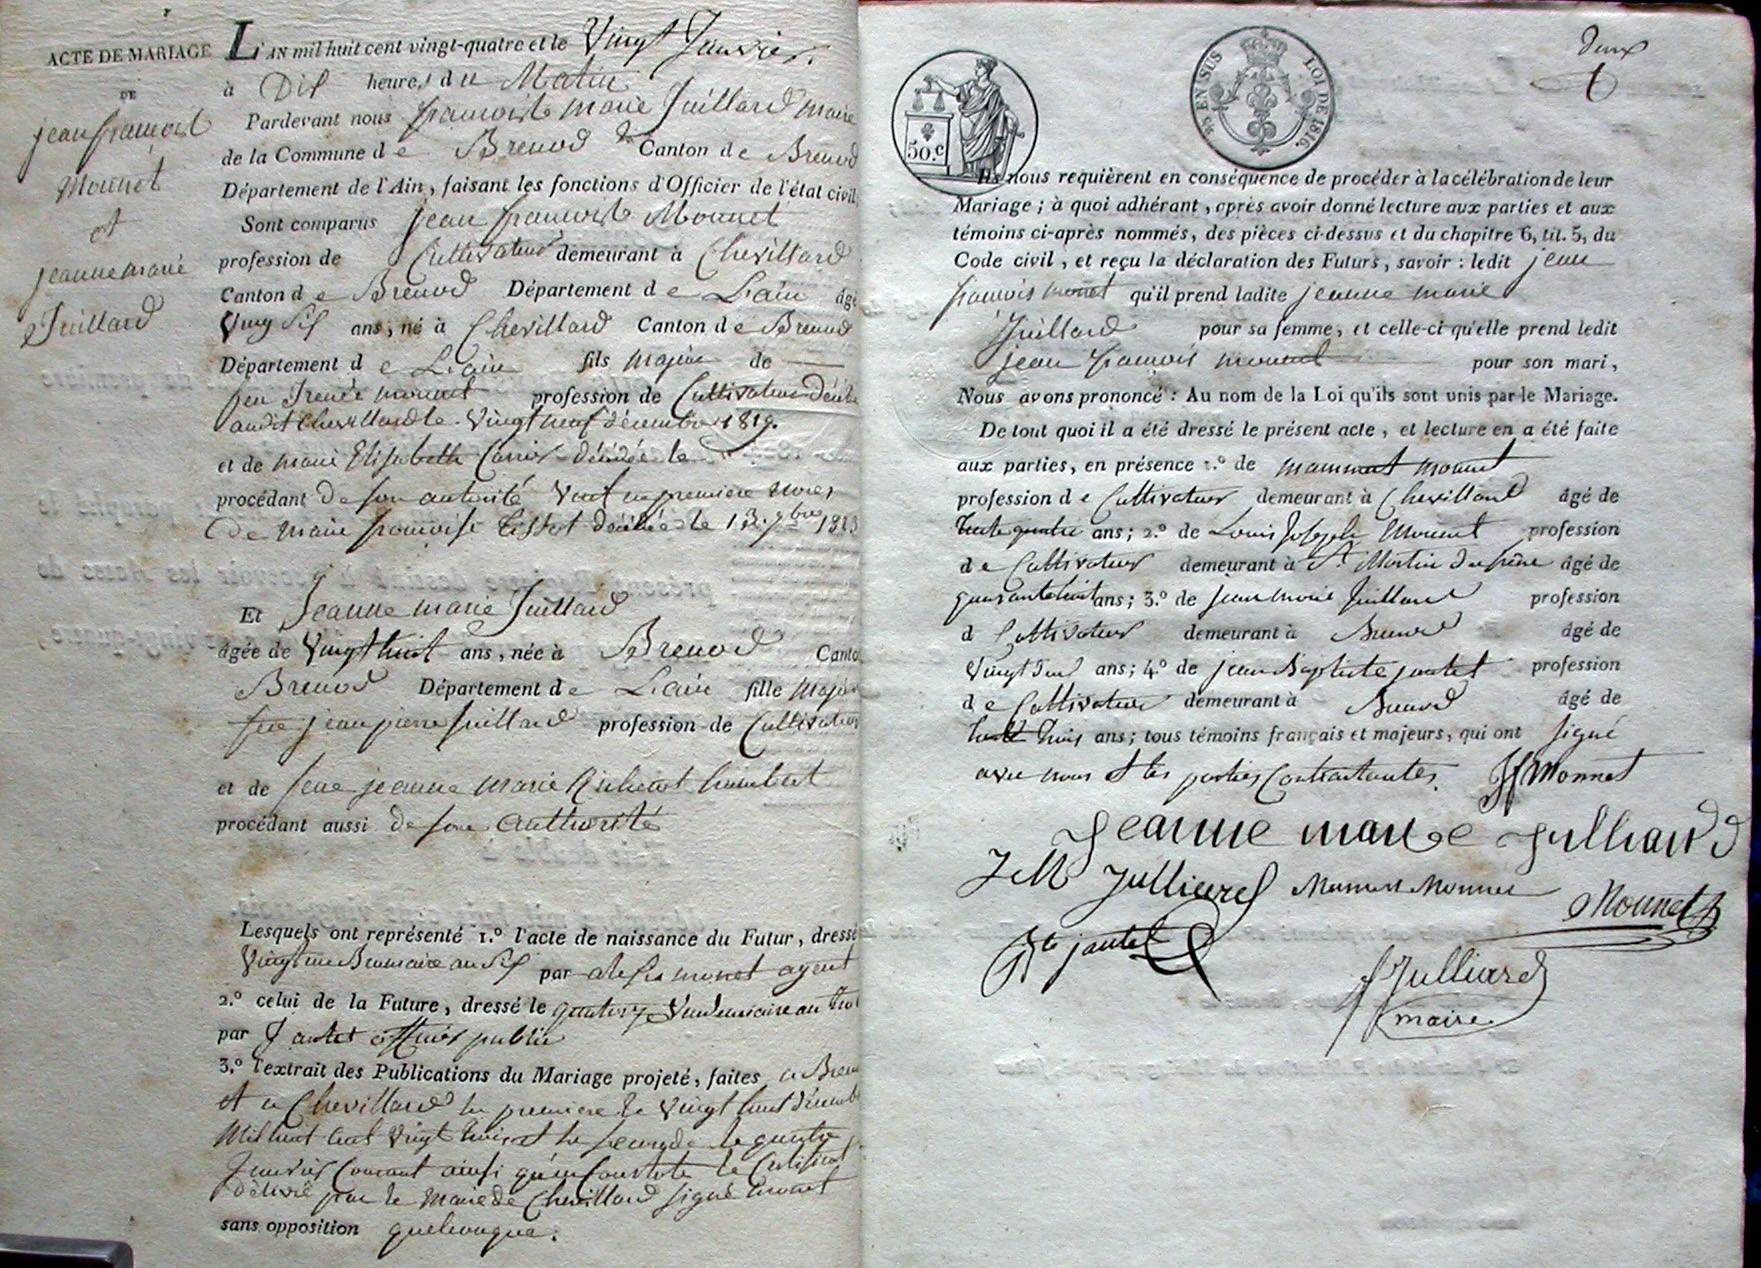 ACTE DE MARIAGE
DE
jean françois
Monnet
et
jeanne marie
Juillard
L'AN mil huit cent vingt-quatre et le Vingt Janvier,
à Dix heures du Matin
Pardevant nous françois marie Juillard maire
de la Commune de Brenod Canton de Brenod
Département de l'Ain, faisant les fonctions d'Officier de l'état civil,
Sont comparus jean françois Monnet
profession de Cultivateur demeurant à Chevillard
Canton de Brenod Département de L'ain âgé
Vingt Six ans, né à Chevillard Canton de Brenod
Département de L'ain fils majeur de
feu Irenée monnet profession de Cultivateur
audit Chevillard le Vingt neuf décembre 1819.
et de marie Elisabeth Carrier décédée le
procédant de son autorité Veuf en première noces
de marie françoise Tissot décédée le 13 7bre 1823
Et Jeanne marie Juillard
âgée de Vingt huit ans, née à Brenod Canto
Brenod Département de L'ain fille Majeur
feu jean pierre Juillard profession de Cultivateur
et de feue jeanne marie humbert
procédant aussi de son authorité
Lesquels ont représenté 1.º l'acte de naissance du Futur, dressé
Vingt un Brumaire an Six par alexis monet agent
2.º celui de la Future, dressé le quatorze Vendemiaire an
par Jantet officier public
3.º l'extrait des Publications du Mariage projeté, faites à Bren
et a Chevillard la premiere le Vingt huit décemb
Mil huit cent Vingt trois et la seconde le quatre
Janvier Courant ainsi qu'en Constate le Certificat
délivré par le Maire de Chevillard signé
sans opposition quelconque.
deux
50.c
LOI DE 1816.
Ils nous requièrent en conséquence de procéder à la célébration de leur
Mariage ; à quoi adhérant, après avoir donné lecture aux parties et aux
témoins ci-après nommés, des pièces ci-dessus et du chapitre 6, tit. 5, du
Code civil, et reçu la déclaration des Futurs, savoir : ledit jean
françois monet qu'il prend ladite jeanne marie
Juillard pour sa femme, et celle-ci qu'elle prend ledit
jean françois monnet pour son mari,
Nous avons prononcé : Au nom de la Loi qu'ils sont unis par le Mariage.
De tout quoi il a été dressé le présent acte, et lecture en a été faite
aux parties, en présence 1.º de mammert monnet
profession de Cultivateur demeurant à Chevillard âgé de
trente quatre ans ; 2.º de Louis Joseph Monnet profession
de Cultivateur demeurant à St. Martin du frêne âgé de
quarante huit ans ; 3.º de jean marie Juillard profession
d Cultivateur demeurant à Brenod âgé de
Vingt ans ; 4.º de jean Baptiste jantet profession
de Cultivateur demeurant à Brenod âgé de
trois ans ; tous témoins français et majeurs, qui ont signé
avec nous et les parties Contractantes. Jf Monnet
Jeanne marie Julliard
J M Julliard Mamert Monnet Monnet
Bte jantet
f Julliard
maire